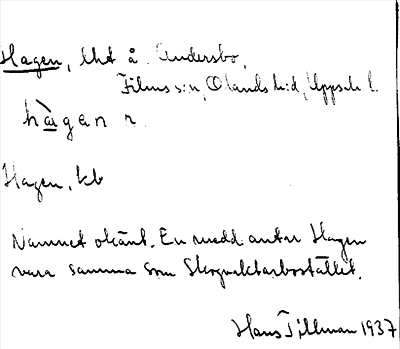 Hagen, lht å Andersbo,
Films sn, Olands hd, Uppsala l.
hàgen r.
Hagen, kb
Namnet okänt. En medd. antar Hagen
vara samma som Skogvaktarbostället.
Hans Tillman 1937